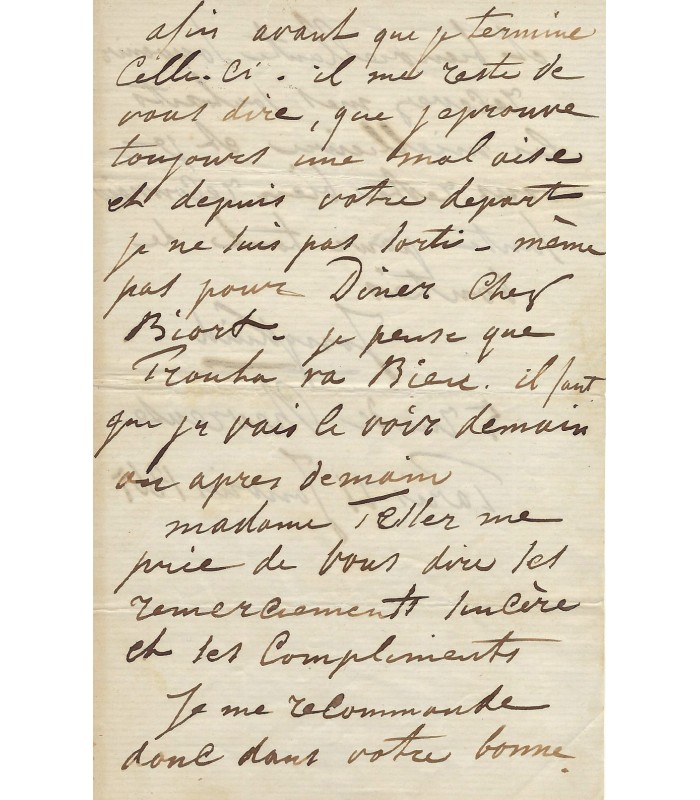 afin avant que je termine
Celle-ci - il me reste de
vous dire, que j'eprouve
toujours une mal aise
et depuis votre depart
je ne suis pas sorti - même
pas pour Diner Chez
Biort - je pense que
va Bien. il faut
que je vais le voir demain
ou apres demain
madame me
prie de Vous dire ses
remerciements sincère
et ses Compliments
Je me recommande
donc dans votre bonne